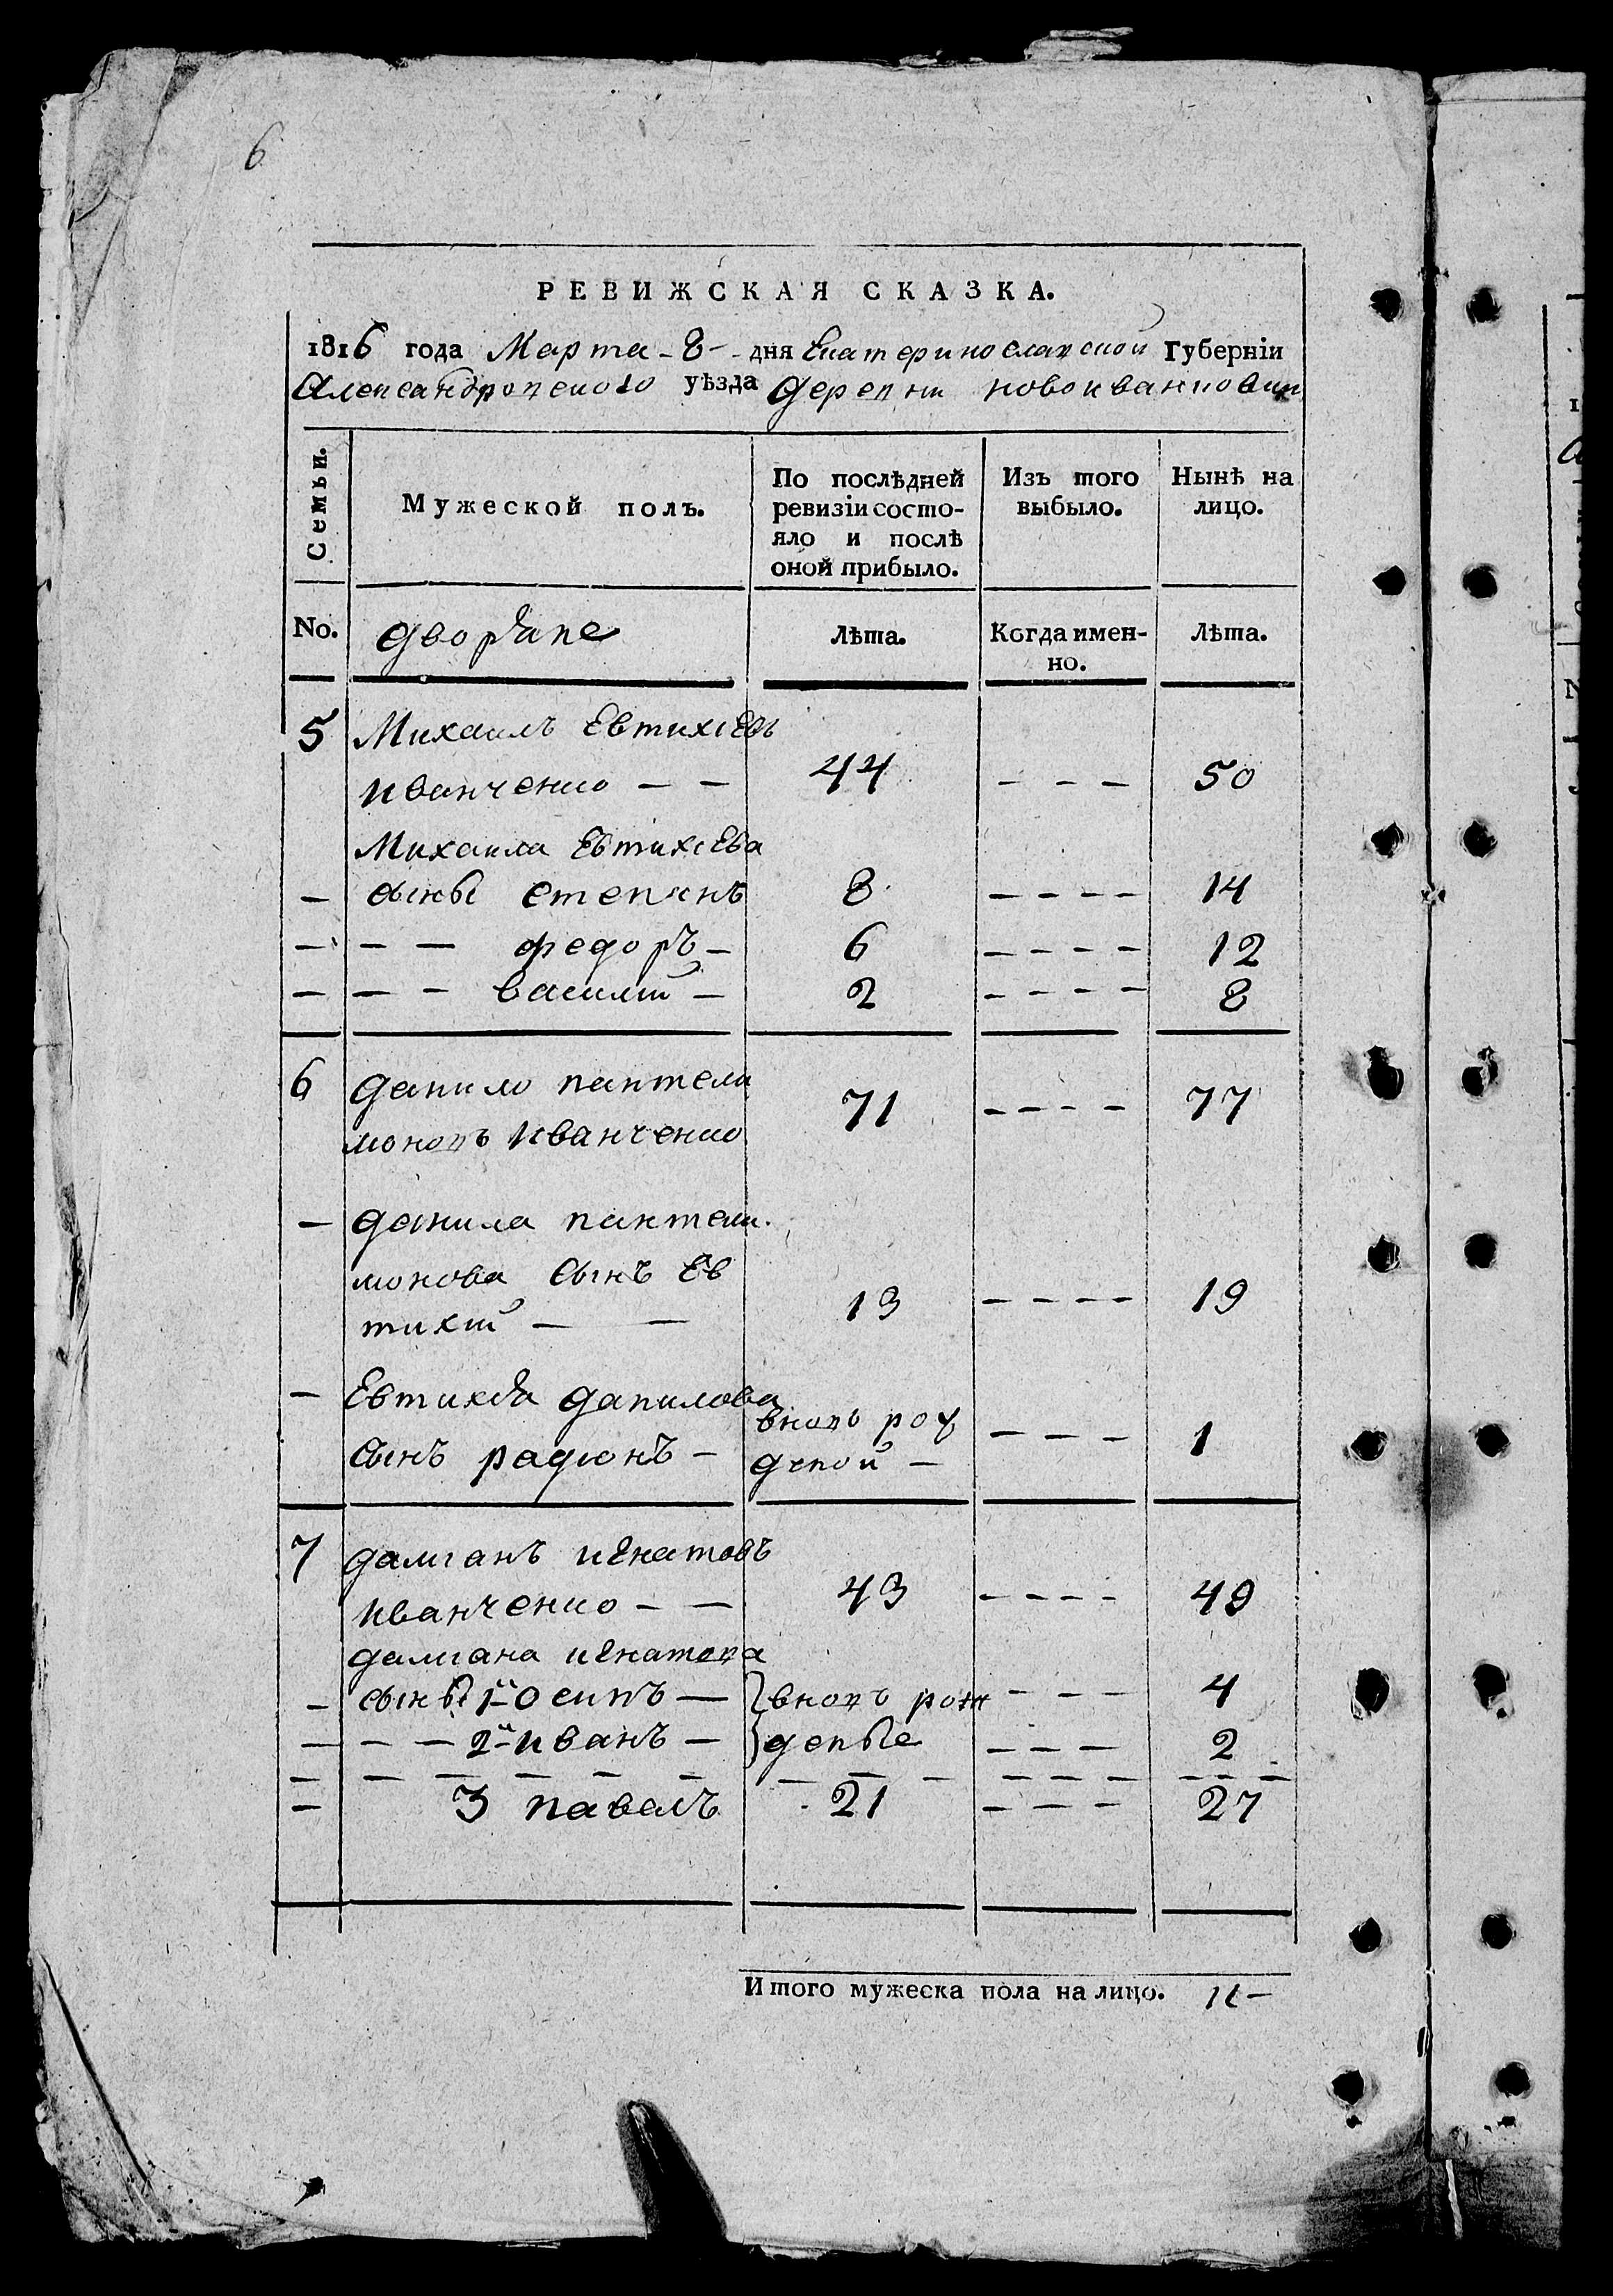 6
РЕВИЖСКАЯ СКАЗКА.
1816 года Марта - 8 - дня Екатеринославской Губерніи
Александровского уѣзда деревни новоиванновки
Семьи.
Мужеской полъ.
По послѣдней ревизіи состояло и послѣ оной прибыло.
Изъ того выбыло.
Нынѣ на лицо.
No. дворяне Лѣта. Когда именно. Лѣта.
5 Михаилъ Евтихіевъ
иванченко — — 44 - - - 50
Михаила Евтихіева
— сыны степанъ 8 - - - - 14
— — — федоръ — 6 - - - - 12
— — — василій — 2 - - - - 8
6 данило пантели
моновъ иванченко 71 - - - - 77
— данила пантели
монова сынъ Ев
тихій — — 13 - - - - 19
— Евтихія данилова
сынъ радіонъ — вновь рож
дено й — - - - 1
7 даміанъ игнатовъ
иванченко — — 43 - - - - 49
даміана игнатова
— сыны 1й осипъ — вновь рож - - - 4
— — — 2й иванъ — деные - - - 2
— 3 павелъ 21 - - - 27
Итого мужеска пола на лицо. 11 —